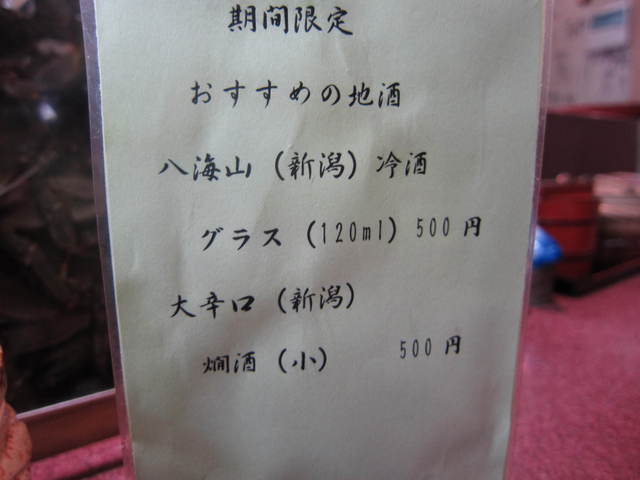 期間限定
おすすめの地酒
八海山（新潟）冷酒
グラス（120ml）500円
大辛口（新潟）
燗酒（小） 500円